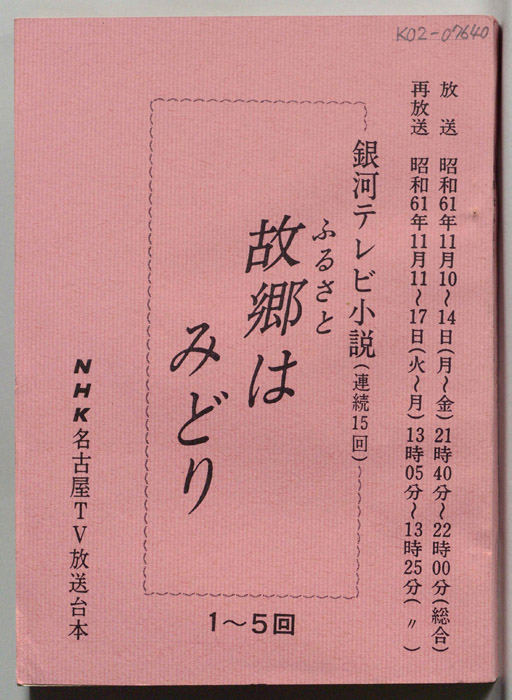 K02-07640
放送 昭和61年11月10〜14日(月〜金)21時40分〜22時00分(総合)
再放送 昭和61年11月11〜17日(火〜月)13時05分〜13時25分(〃)
銀河テレビ小説(連続15回)
ふるさと
故郷は
みどり
1〜5回
NHK名古屋TV放送台本